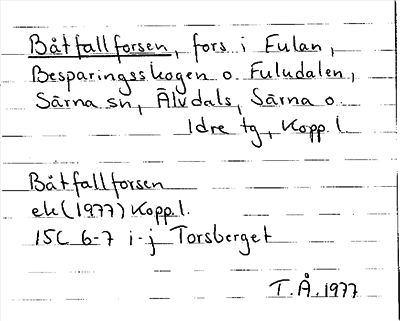 Båtfallforsen, fors i Fulan,
Besparingsskogen o. Fuludalen,
Särna sn, Älvdals, Särna o.
Idre tg, Kopp. l.
Båtfallforsen
ek (1977) Kopp. l.
15C 6-7 i-j Torsberget
T. Å. 1977